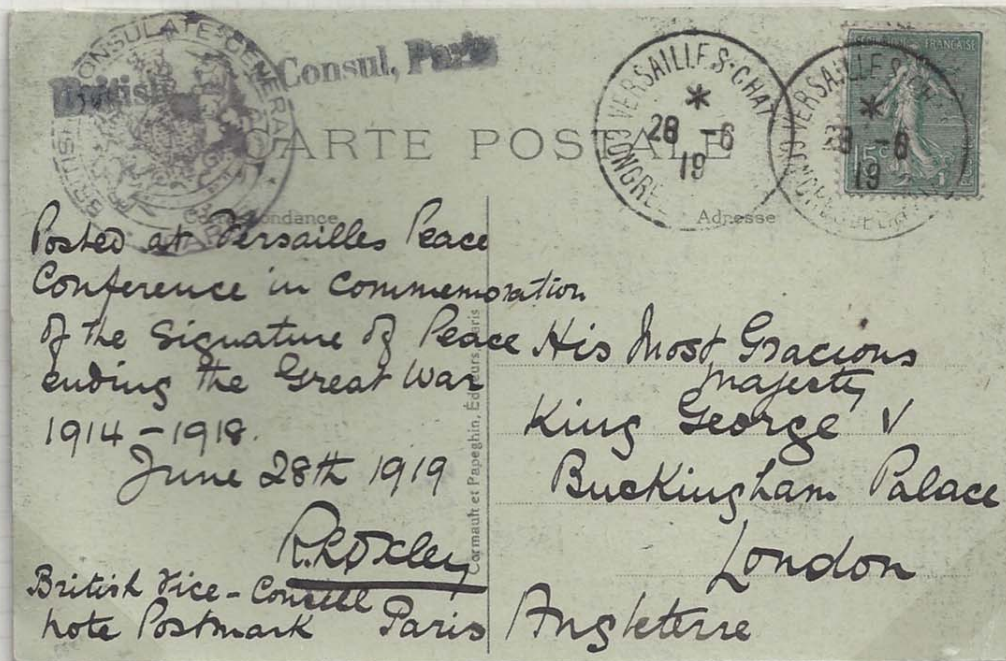 BRITISH CONSULATE-GENERAL
British Consul, Paris
VERSAILLES-CHAT
CONGRE
28 -6
19
VERSAILLES-CH
28 -6
19
FRANÇAISE
15c
CARTE POSTALE
Correspondance
Adresse
Posted at Versailles Peace
Conference in Commemoration
of the Signature of Peace
ending the Great War
1914-1918.
June 28th 1919
R. Roxley
British Vice-Consul
note Postmark Paris
Cormault et Papeghin, Éditeurs, Paris
His Most Gracious
Majesty
King George V
Buckingham Palace
London
Angleterre